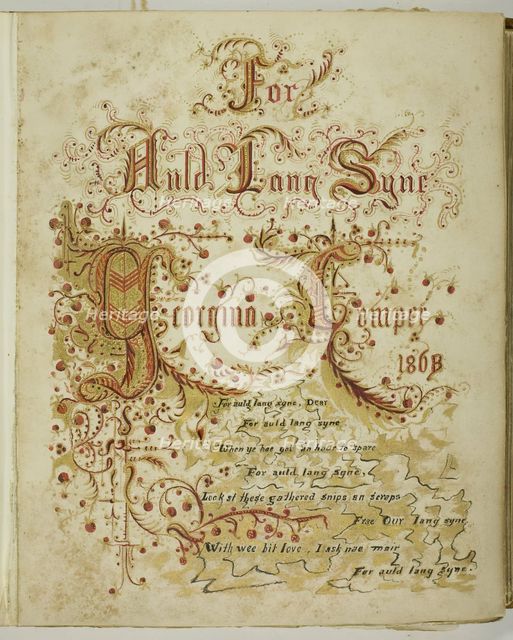 For
Auld Lang Syne
Georgina
1868
For auld lang syne, Dear
For auld lang syne
When ye hae got an hour to spare
For auld lang syne,
Look at these gathered snips an scraps
Frae Our lang syne
With wee bit love, I ask nae mair
For auld lang syne.